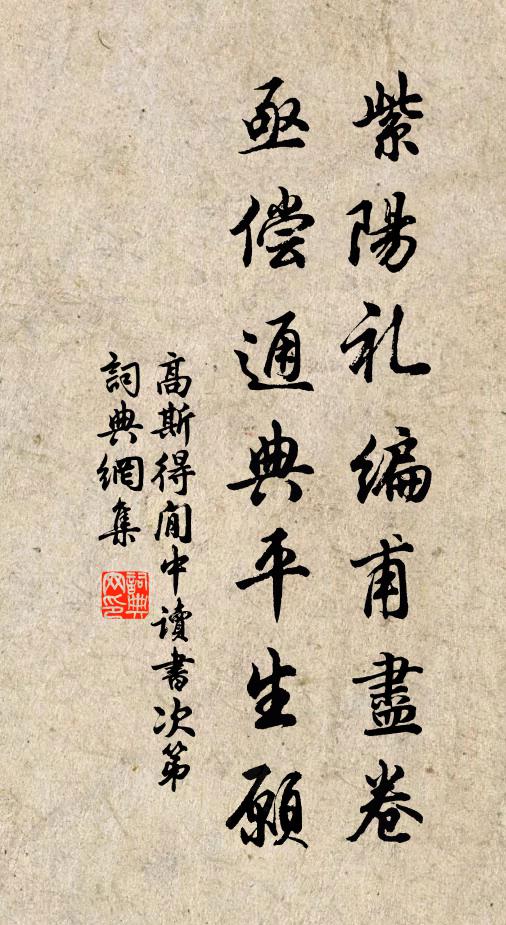 紫陽礼编甫盡卷
亟偿通典平生願
高斯得閒中讀書次第
詞典網集
詞典网印